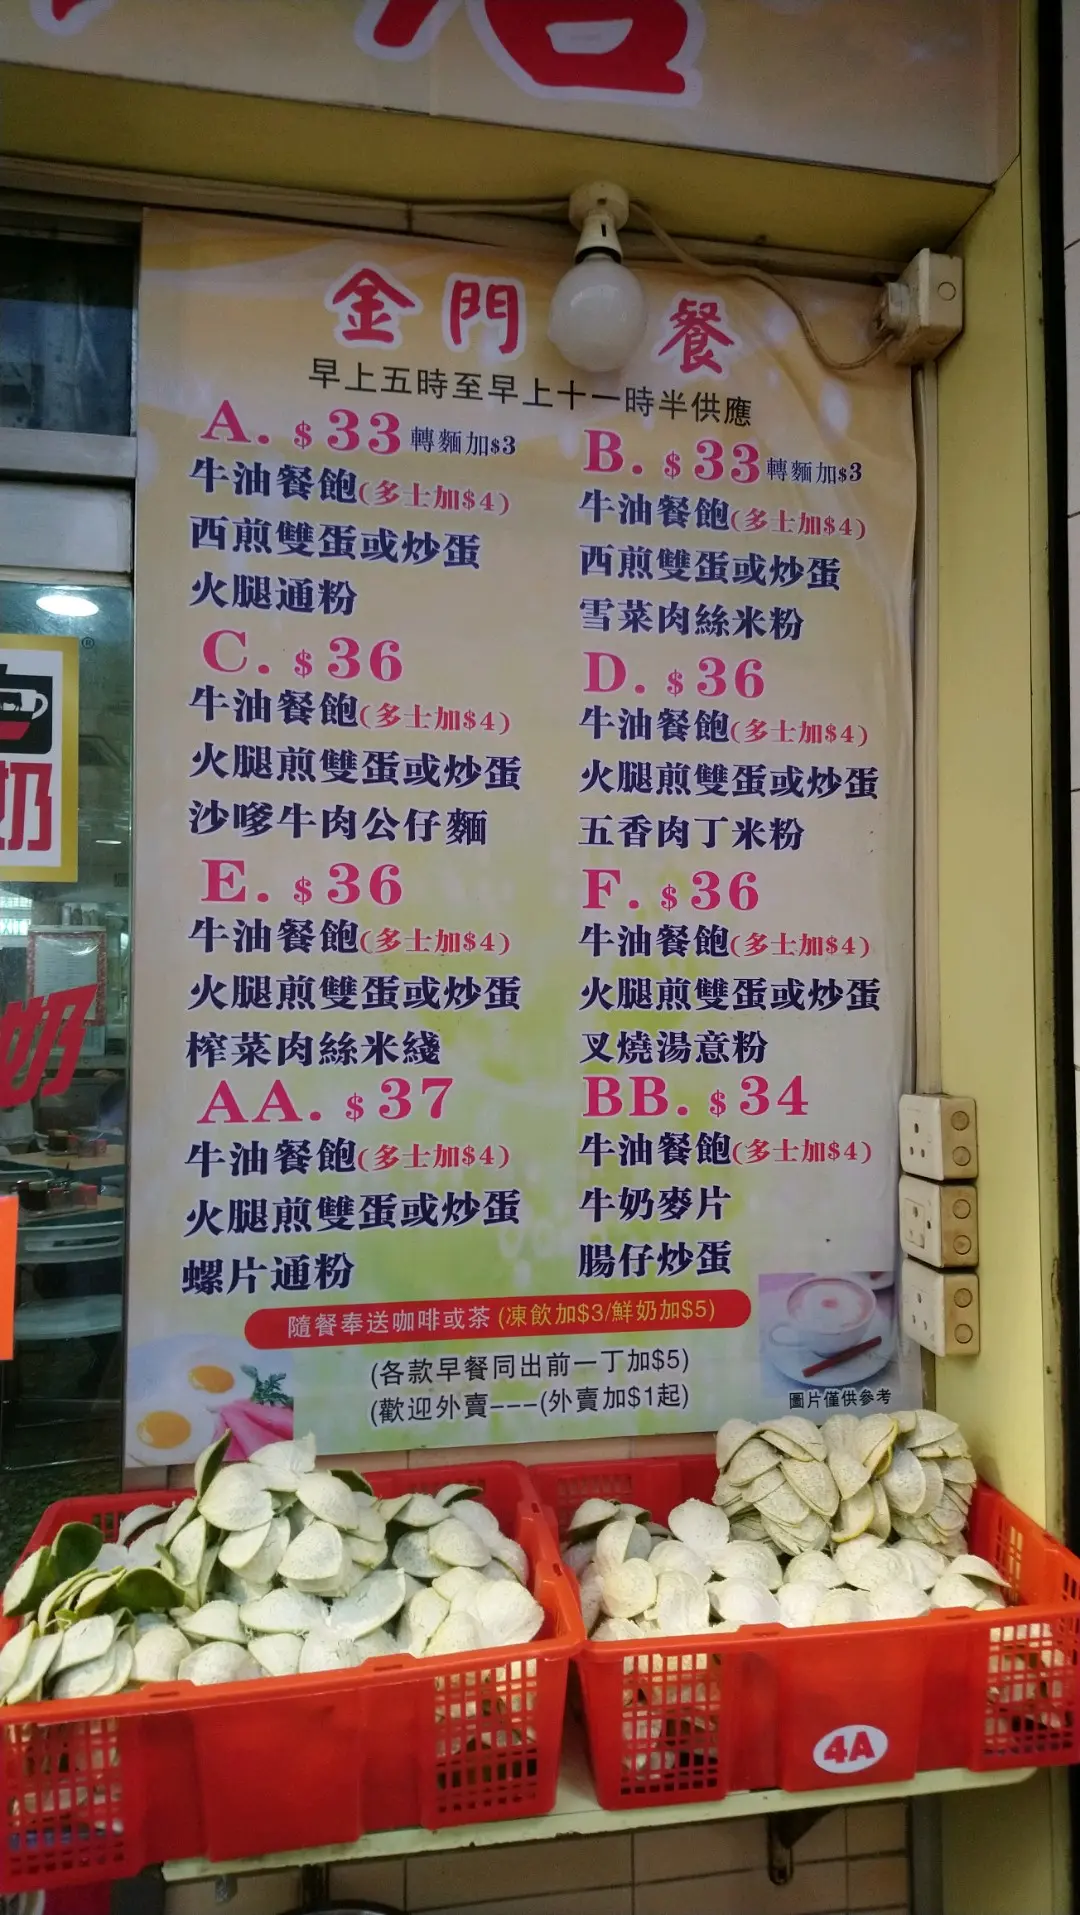 金門 餐
早上五時至早上十一時半供應
A. $33 轉麵加$3
牛油餐飽(多士加$4)
西煎雙蛋或炒蛋
火腿通粉
B. $33 轉麵加$3
牛油餐飽(多士加$4)
西煎雙蛋或炒蛋
雪菜肉絲米粉
C. $36
牛油餐飽(多士加$4)
火腿煎雙蛋或炒蛋
沙嗲牛肉公仔麵
D. $36
牛油餐飽(多士加$4)
火腿煎雙蛋或炒蛋
五香肉丁米粉
E. $36
牛油餐飽(多士加$4)
火腿煎雙蛋或炒蛋
榨菜肉絲米綫
F. $36
牛油餐飽(多士加$4)
火腿煎雙蛋或炒蛋
叉燒湯意粉
AA. $37
牛油餐飽(多士加$4)
火腿煎雙蛋或炒蛋
螺片通粉
BB. $34
牛油餐飽(多士加$4)
牛奶麥片
腸仔炒蛋
隨餐奉送咖啡或茶 (凍飲加$3/鮮奶加$5)
(各款早餐同出前一丁加$5)
(歡迎外賣---(外賣加$1起)
圖片僅供參考
奶
奶
4A